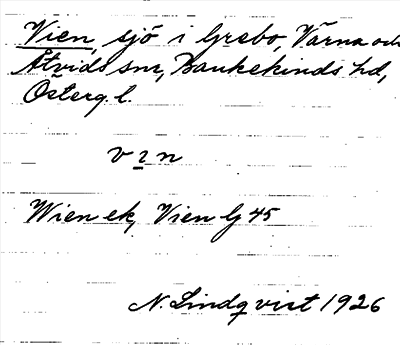 Vien, sjö i Grebo, Värna och
Åtvids snr, Bankekinds hd,
Österg. l.
vın
Wien ek, Vien Gj 45
N. Lindqvist 1926